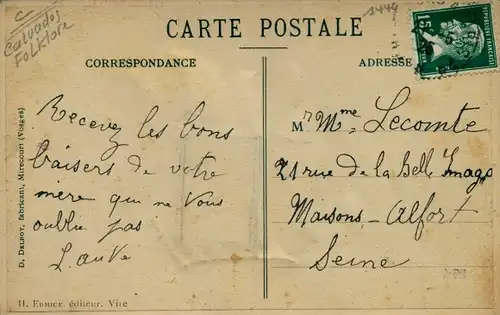 C
Calvados
Folklore
1449
CARTE POSTALE
CORRESPONDANCE
ADRESSE
REPUBLIQUE FRANÇAISE
15
Recevez les bons
baisers de votre
mère qui ne vous
oublie pas
Mr Mme Lecomte
21 rue de la Belle Image
Maisons-Alfort
Seine
D. DELBOY, fabricant, Mirecourt (Vosges)
H. ERMICE, éditeur, Vire